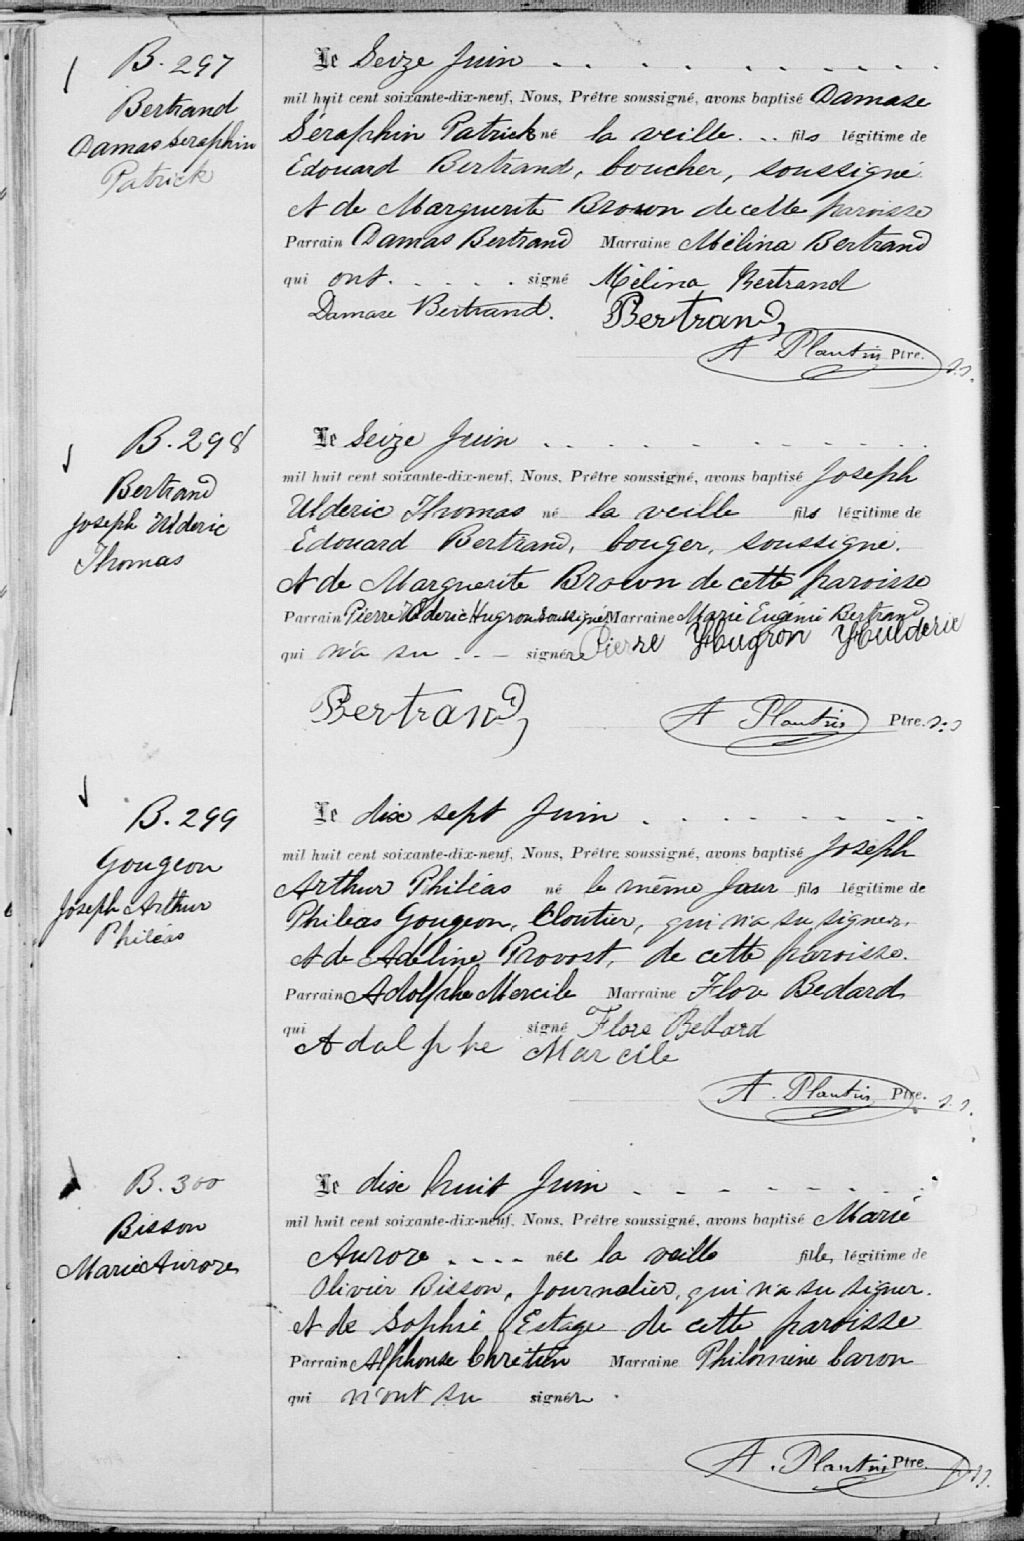 B. 297
Bertrand
Damas Seraphin
Patrick
Le Seize Juin
mil huit cent soixante-dix-neuf, Nous, Prêtre soussigné, avons baptisé Damase
Séraphin Patrick né la veille fils légitime de
Edouard Bertrand, boucher, soussigné
et de Marguerite Brown de cette paroisse
Parrain Damas Bertrand Marraine Mélina Bertrand
qui ont signé Mélina Bertrand
Damase Bertrand. Bertrand
A Plantin Ptre. s.s.
B. 298
Bertrand
Joseph Ulderic
Thomas
Le Seize Juin
mil huit cent soixante-dix-neuf, Nous, Prêtre soussigné, avons baptisé Joseph
Ulderic Thomas né la veille fils légitime de
Edouard Bertrand, bouger, soussigné.
et de Marguerite Brown de cette paroisse
Parrain Pierre Ulderic Hugron soussigné Marraine Marie Eugénie Bertrand
qui n'a su signer Pierre Hugron Hulderic
Bertrand A Plantin Ptre. s.s
B. 299
Gougeon
Joseph Arthur
Philéas
Le dix sept Juin
mil huit cent soixante-dix-neuf, Nous, Prêtre soussigné, avons baptisé Joseph
Arthur Philéas né le même jour fils légitime de
Philéas Gougeon, Cloutier, qui n'a su signer,
et de Adéline Provost, de cette paroisse.
Parrain Adolphe Mercile Marraine Flore Bedard
qui signé Flore Bedard
Adolphe Marcile
A. Plantin Ptre. s.s.
B. 300
Bisson
Marie Aurore
Le dix huit Juin
mil huit cent soixante-dix-neuf, Nous, Prêtre soussigné, avons baptisé Marie
Aurore née la veille fille légitime de
Olivier Bisson, Journalier, qui n'a su signer.
et de Sophie Estage de cette paroisse
Parrain Alphonse Chrétien Marraine Philomène Caron
qui n'ont su signer.
A. Plantin Ptre. s.s.